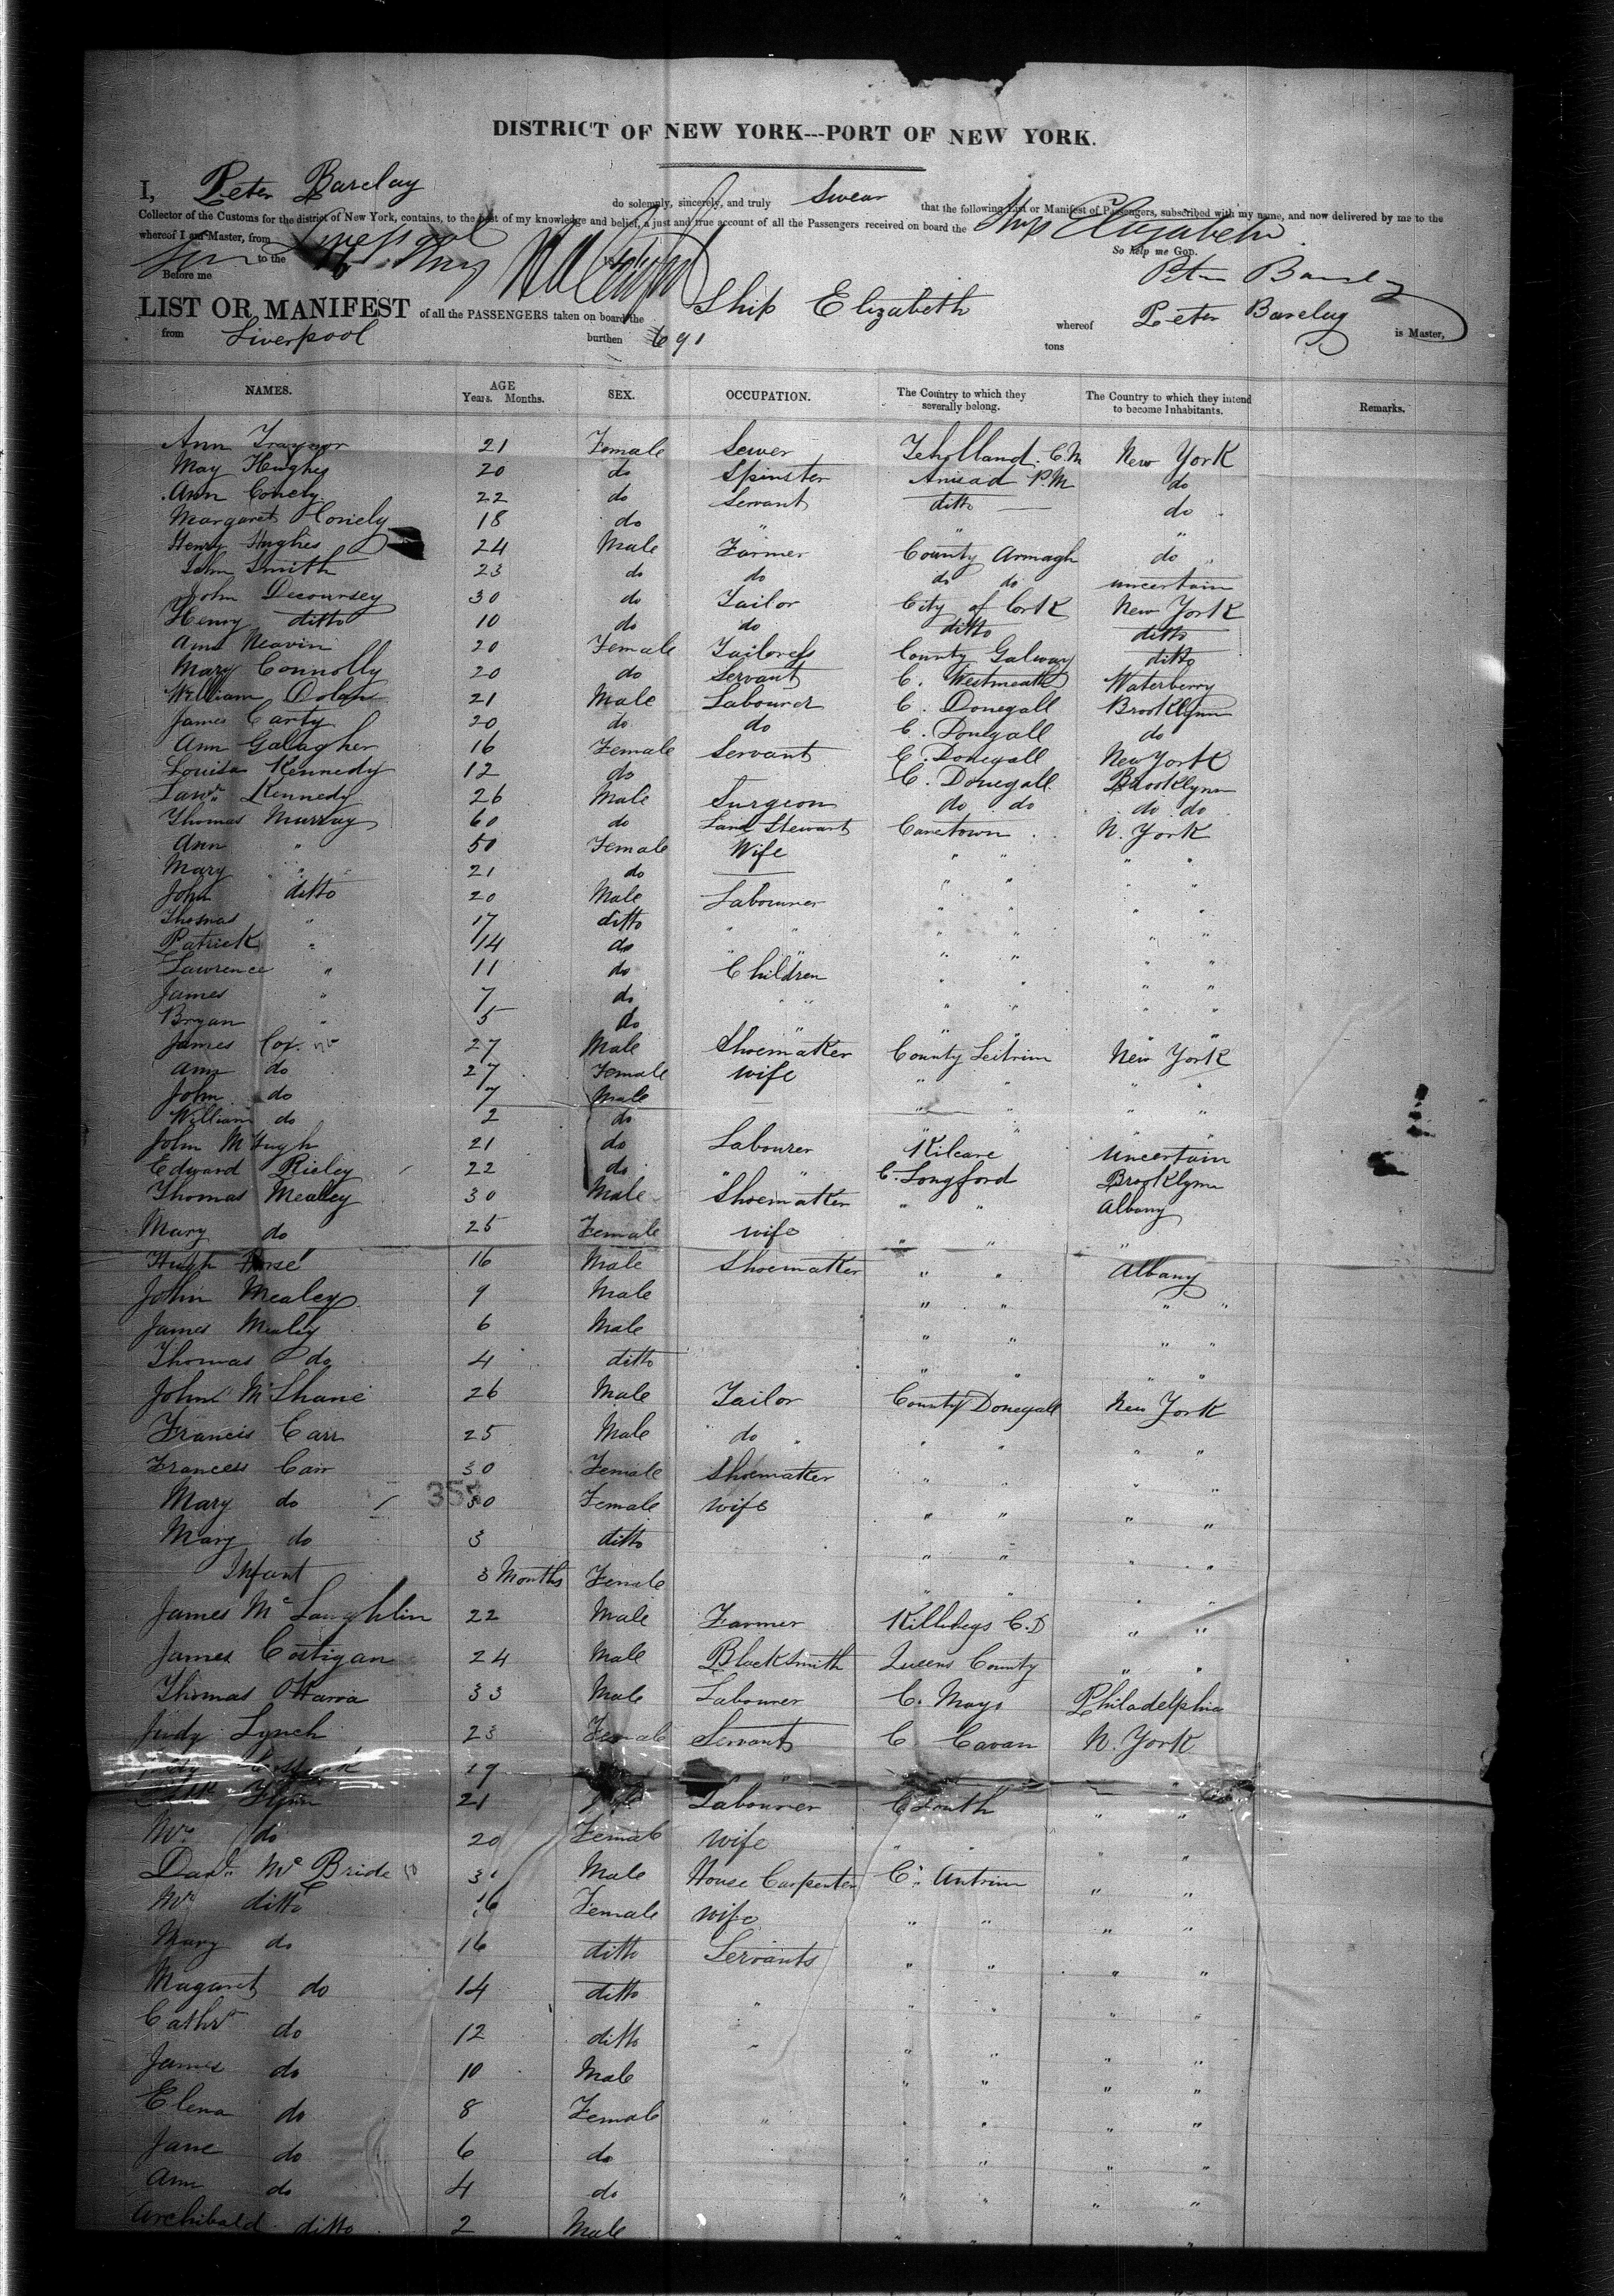 DISTRICT OF NEW YORK---PORT OF NEW YORK.
I, Peter Barclay do solemnly, sincerely, and truly Swear that the following List or Manifest of Passengers, subscribed with my name, and now delivered by me to the
Collector of the Customs for the district of New York, contains, to the best of my knowledge and belief, a just and true account of all the Passengers received on board the Ship Elizabeth
whereof I am Master, from Liverpool So help me God.
to the 16 May Peter Barclay
Before me
LIST OR MANIFEST of all the PASSENGERS taken on board the Ship Elizabeth whereof Peter Barclay is Master,
from Liverpool burthen 691 tons
NAMES. AGE Years. Months. SEX. OCCUPATION. The Country to which they severally belong. The Country to which they intend to become Inhabitants. Remarks.
Ann Traynor 21 Female Sewer Teholland. C.M New York
May Hughes 20 do Spinster P.M do
Ann Conely 22 do Servant ditto do
Margaret Conely 18 do " " "
Henry Hughes 24 Male Farmer County Armagh do "
John Smith 23 do do do do uncertain
John Decoursey 30 do Tailor City of Cork New York
Henry ditto 10 do do ditto ditto
Ann Neavin 20 Female Tailoress County Galway ditto
Mary Connolly 20 do Servant C. Westmeath Waterberry
William Dolan 21 Male Labourer C. Donegall Brooklynn
James Carty 20 do do C. Donegall do
Ann Galagher 16 Female Servant C. Donegall New York
Louisa Kennedy 12 do C. Donegall Brooklynn
Lawr. Kennedy 26 Male Surgeon do do do do
Thomas Murray 60 do Land Stewart Canetown N. York
Ann " 50 Female Wife " " " "
Mary " 21 do " " " "
John ditto 20 Male Labourer " " " "
Thomas " 17 ditto " " " " " "
Patrick " 14 do " " " " "
Lawrence " 11 do Children " " " "
James " 7 do " " " " " "
Bryan " 5 do " " " " "
James Cox 27 Male Shoemaker County Leitrim New York
Ann do 27 Female wife " " " "
John do 7 Male " " " "
William do 2 do " " " "
John McHugh 21 do Labourer Kilcare Uncertain
Edward Rieley 22 do " " C. Longford Brooklynn
Thomas Mealey 30 Male Shoemaker " " Albany
Mary do 25 Female wife " " "
Hugh 16 Male Shoemaker " " Albany
John Mealey 9 Male " " " "
James Mealey 6 Male " " " "
Thomas do 4 ditto " " " "
John McShane 26 Male Tailor County Donegall New York
Francis Carr 25 Male do " " " " "
Francess Carr 30 Female Shoemaker " " " "
Mary do 30 Female wife " " " "
Mary do 3 ditto " " " "
Infant 3 Months Female " " " "
James McLaughlin 22 Male Farmer Killebegs C.D " "
James Costigan 24 Male Blacksmith Queens County " "
Thomas OHarra 33 Male Labourer C. Mayo Philadelphia
Judy Lynch 23 Female Servant C Cavan N. York
19 " "
Flynn 21 Labourer C Louth " "
Mrs do 20 Female wife " " "
Danl. McBride Male House Carpenter C. Antrim " "
Mrs ditto Female wife " " " "
Mary do 16 ditto Servants " " " "
Magaret do 14 ditto " " " " "
Cathr do 12 ditto " " " " "
James do 10 Male " " " "
Elena do 8 Female " " " " "
Jane do 6 do " " " "
Ann do 4 do " " " "
Archibald ditto 2 Male " " "